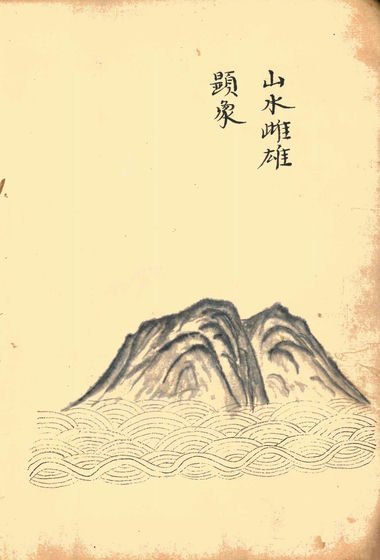 山水雌雄
顕象